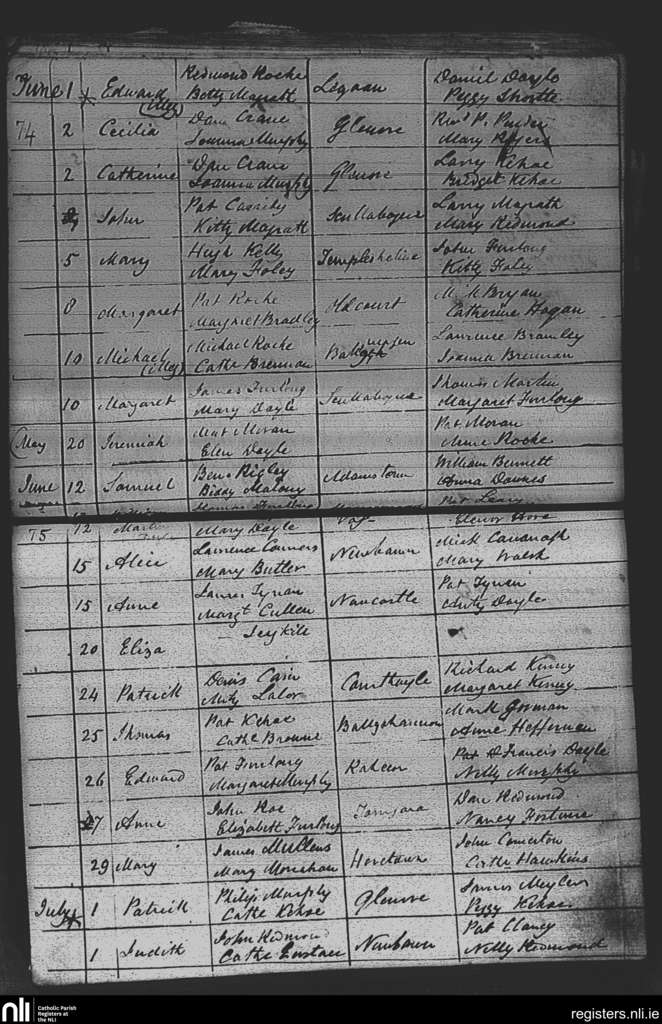 Redmond Roche Daniel Doyle
June 1 x Edward Betty Magrath Legaan Peggy Shortte
(Illeg)
74 2 Cecilia Dan Crane Glenore Revd P.
Joanna Murphy Mary
2 Catherine Dan Crane Glenore Larry Kehoe
Joanna Murphy Bridget Kehoe
John Pat Cassidy Scullabogue Larry Magrath
Kitty Magrath Mary Redmond
5 Mary Hugh Kelly Templeshelin John Furlong
Mary Foley Kitty Foley
8 Margaret Pat Roche Oldcourt Bryan
Margret Bradley Catherine Hogan
10 Michael Michael Roche Laurence Bramley
(Illeg) Cathe Brennan Joanna Brennan
10 Margaret James Furlong Scullabogue Thomas Martin
Mary Doyle Margaret Furlong
(May 20 Jeremiah Matt Moran Pat Moran
Elen Doyle Anne Roche
June 12 Samuel Ben Rigley Adamstown William Bennett
Biddy Malony Anna Downes
Pat Leary
75 12 Martin Mary Doyle Elenor Hore
15 Alice Laurence Connors Newbawn Mick Cavanagh
Mary Butler Mary Walsh
15 Anne James Tynan Nancastle Pat Tynan
Margt Cullen Anty Doyle
20 Eliza
24 Patrick Denis Cain Courthoyle Richard Kenny
Anty Lalor Margaret Kenny
25 Thomas Pat Kehoe Ballyshannon Mark Gorman
Cathe Browne Anne Heffernan
26 Edward Pat Furlong Raheen Pat & Francis Doyle
Margaret Murphy Nelly Murphy
27 Anne John Roe Dan Redmond
Elizabeth Furlong Nancy Fortune
29 Mary James Mullens Horetown John Comerton
Mary Monahan Cathe Hawkins
July 1 Patrick Philip Murphy Glenore James Meyler
Cathe Kehoe Peggy Kehoe
1 Judith John Redmond Newbawn Pat Clancy
Cathe Eustace Nelly Redmond
nli Catholic Parish
Registers at
the NLI
registers.nli.ie